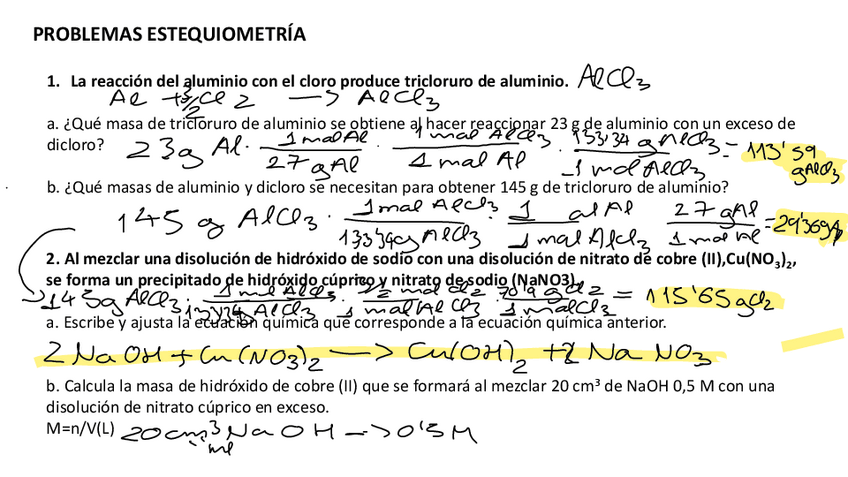 PROBLEMAS ESTEQUIOMETRÍA
1. La reacción del aluminio con el cloro produce tricloruro de aluminio. AlCl3
Al + 3/2 Cl2 → AlCl3
a. ¿Qué masa de tricloruro de aluminio se obtiene al hacer reaccionar 23 g de aluminio con un exceso de
dicloro? 23g Al · 1 mol Al / 27 g Al · 1 mol AlCl3 / 1 mol Al · 133'34 g AlCl3 / 1 mol AlCl3 = 113'59 g AlCl3
b. ¿Qué masas de aluminio y dicloro se necesitan para obtener 145 g de tricloruro de aluminio?
145 g AlCl3 · 1 mol AlCl3 / 133'34 g AlCl3 · 1 mol Al / 1 mol AlCl3 27 g Al / 1 mol Al = 29'36 g Al
2. Al mezclar una disolución de hidróxido de sodio con una disolución de nitrato de cobre (II),Cu(NO3)2,
se forma un precipitado de hidróxido cúprico y nitrato de sodio (NaNO3).
145g AlCl3 · 1 mol AlCl3 / 133'34 g AlCl3 · 3/2 mol Cl2 / 1 mol AlCl3 · 70'9 g Cl2 / 1 mol Cl2 = 115'65 g Cl2
a. Escribe y ajusta la ecuación química que corresponde a la ecuación química anterior.
2 NaOH + Cu(NO3)2 → Cu(OH)2 + 2 NaNO3
b. Calcula la masa de hidróxido de cobre (II) que se formará al mezclar 20 cm³ de NaOH 0,5 M con una
disolución de nitrato cúprico en exceso.
M=n/V(L) 20 cm³ NaOH → 0'5 M
ml